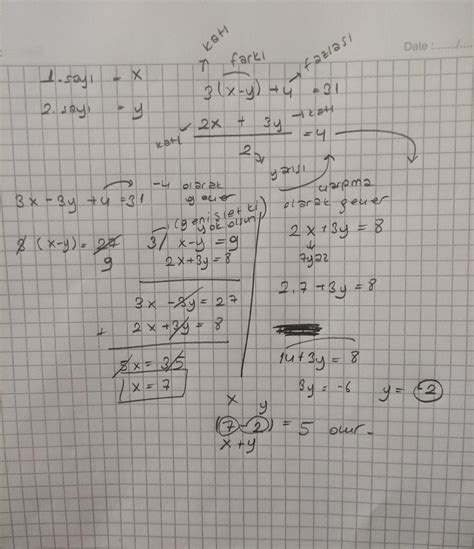 Date : ....../......
katı
farkı
fazlası
1. sayı = x
3(x-y) + 4 = 31
2. sayı = y
katı
2x + 3y
katı
= 4
2
yarısı
3x - 3y + 4 = 31
-4 olarak geçer
çarpma olarak geçer
3 (x-y) = 27
9
(genişlet ki yok olsun)
3/ x-y = 9
2x+3y = 8
2x+3y = 8
7 yaz
2.7+3y = 8
3x - 3y = 27
+ 2x + 3y = 8
5x = 35
x = 7
14+3y = 8
3y = -6
y = -2
x y
(7 -2) = 5 olur.
x+y